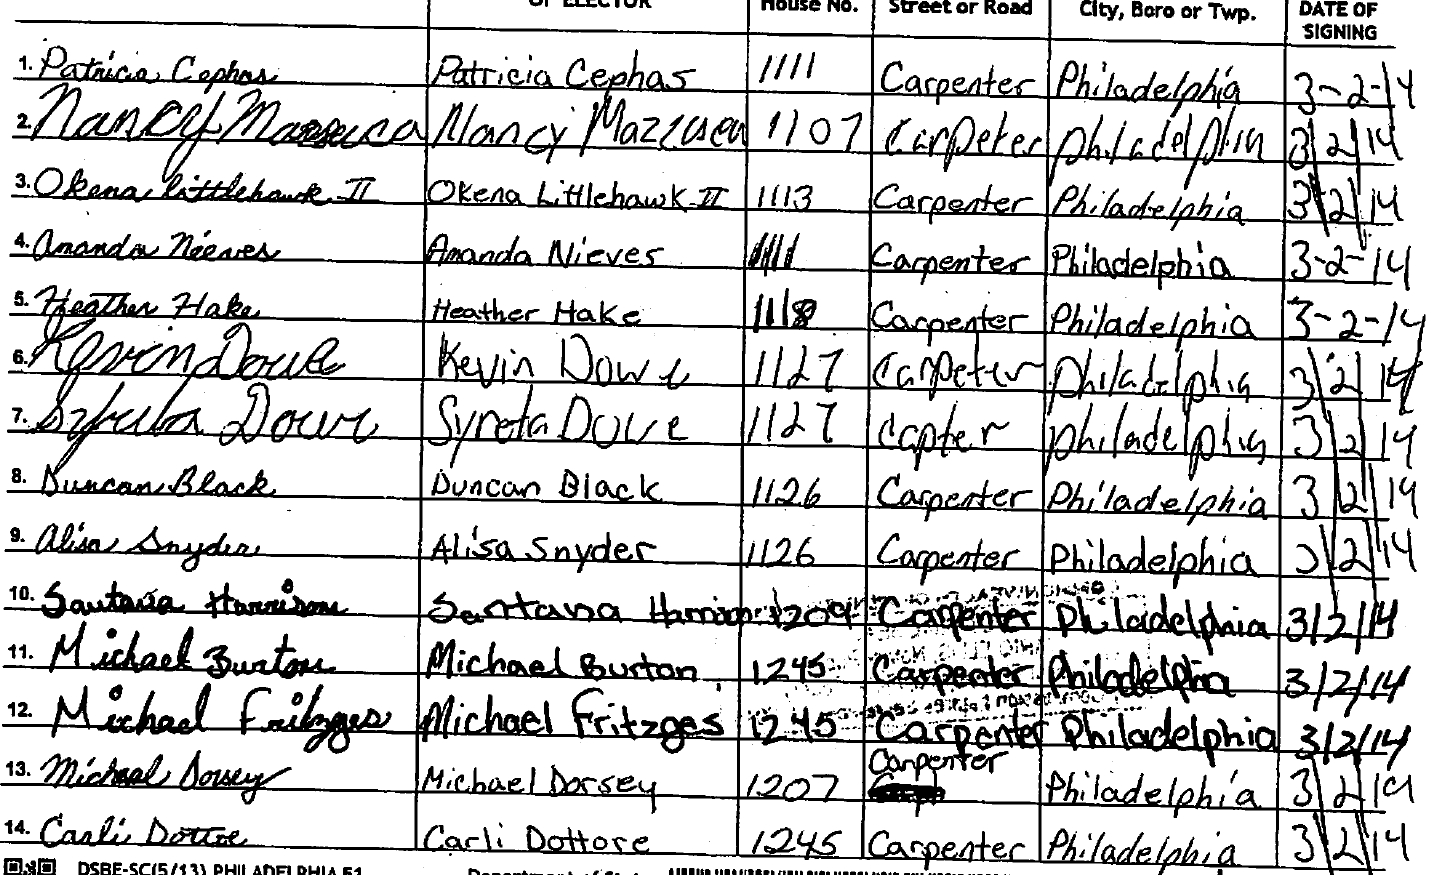 OF ELECTOR House No. Street or Road City, Boro or Twp. DATE OF SIGNING
1. Patricia Cephas Patricia Cephas 1111 Carpenter Philadelphia 3-2-14
2. Nancy Nancy 1107 Carpeter philadelphia 3/2/14
3. Okena Littlehawk II Okena Littlehawk II 1113 Carpenter Philadelphia 3/2/14
4. Amanda Nieves Amanda Nieves Carpenter Philadelphia 3-2-14
5. Heather Hake Heather Hake 1118 Carpenter Philadelphia 3-2-14
6. Kevin Dowe Kevin Dowe 1127 Carpeter philadelphia 3/2/14
7. Dowe Syreta Dowe 1127 Capter philadelphia 3/2/14
8. Duncan Black Duncan Black 1126 Carpenter Philadelphia 3/2/14
9. Alisa Snyder Alisa Snyder 1126 Carpenter Philadelphia 3/2/14
10. Santana Harrison Santana 1209 Carpenter Philadelphia 3/2/14
11. Michael Burton Michael Burton 1245 Carpenter Philadelphia 3/2/14
12. Michael Fritzges Michael Fritzges 1245 Carpenter Philadelphia 3/2/14
13. Michael Dorsey Michael Dorsey 1207 Carpenter Philadelphia 3/2/14
14. Carli Dottore Carli Dottore 1245 Carpenter Philadelphia 3/2/14
DSBE-SC(5/13) PHILADELPHIA 51